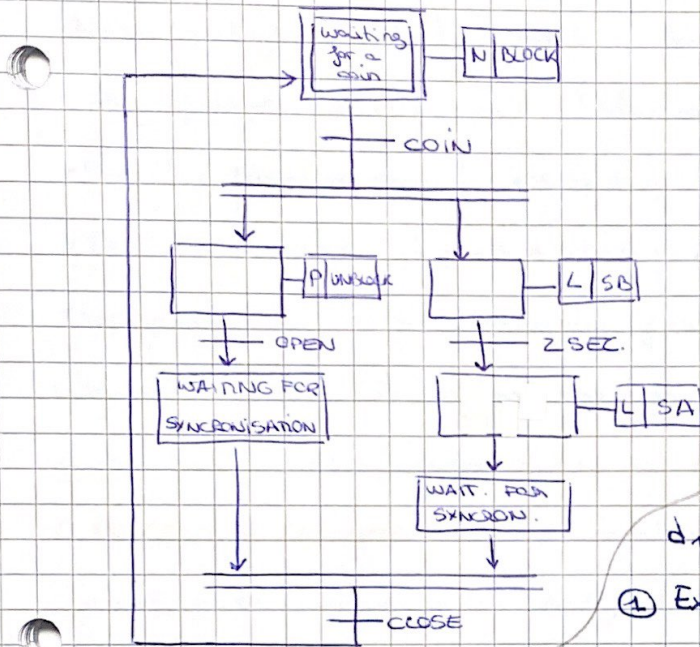 waiting
for a
coin
N BLOCK
COIN
P UNBLOCK
L SB
OPEN
2 SEC.
WAITING FOR
SYNCRONISATION
L SA
WAIT. FOR
SYNCRON.
① Ex
CLOSE